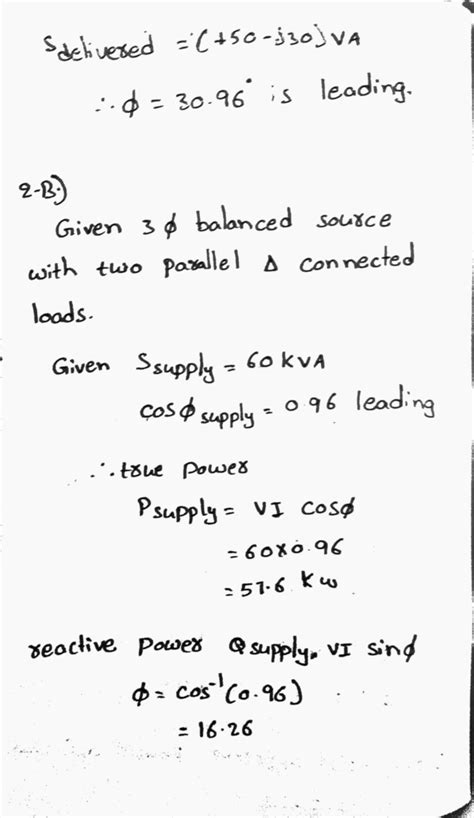 Sdelivered = (+50-j30) VA
∴ φ = 30.96° is leading.
2-B.)
Given 3 φ balanced source
with two parallel Δ connected
loads.
Given Ssupply = 60 KVA
cos φ supply = 0.96 leading
∴ true power
Psupply = VI cosφ
= 60x0.96
= 57.6 Kw
reactive power Qsupply = VI sinφ
φ = cos⁻¹(0.96)
= 16.26